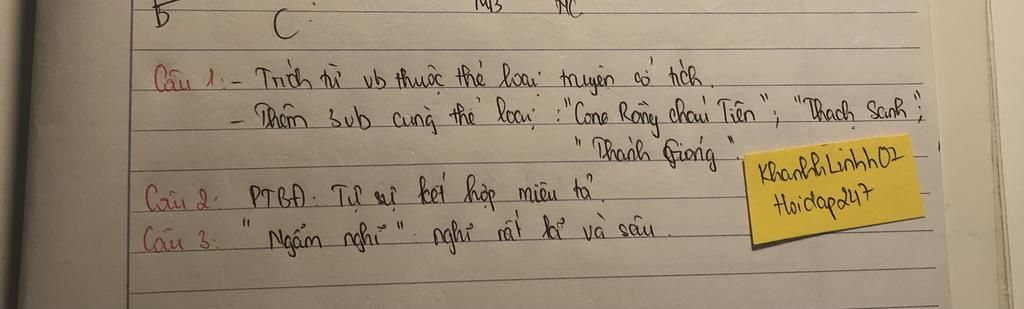 B C M/B NC
Câu 1: - Trích từ vb thuộc thể loại truyện cổ tích.
- Thêm 3vb cùng thể loại: "Cong Rồng cháu Tiên"; "Thạch Sanh";
"Thánh Gióng".
Câu 2: PTBĐ: Tự sự kết hợp miêu tả.
Câu 3: "Ngẫm nghĩ": nghĩ rất kĩ và sâu.
KhanhhLinhh07
Hoidap247